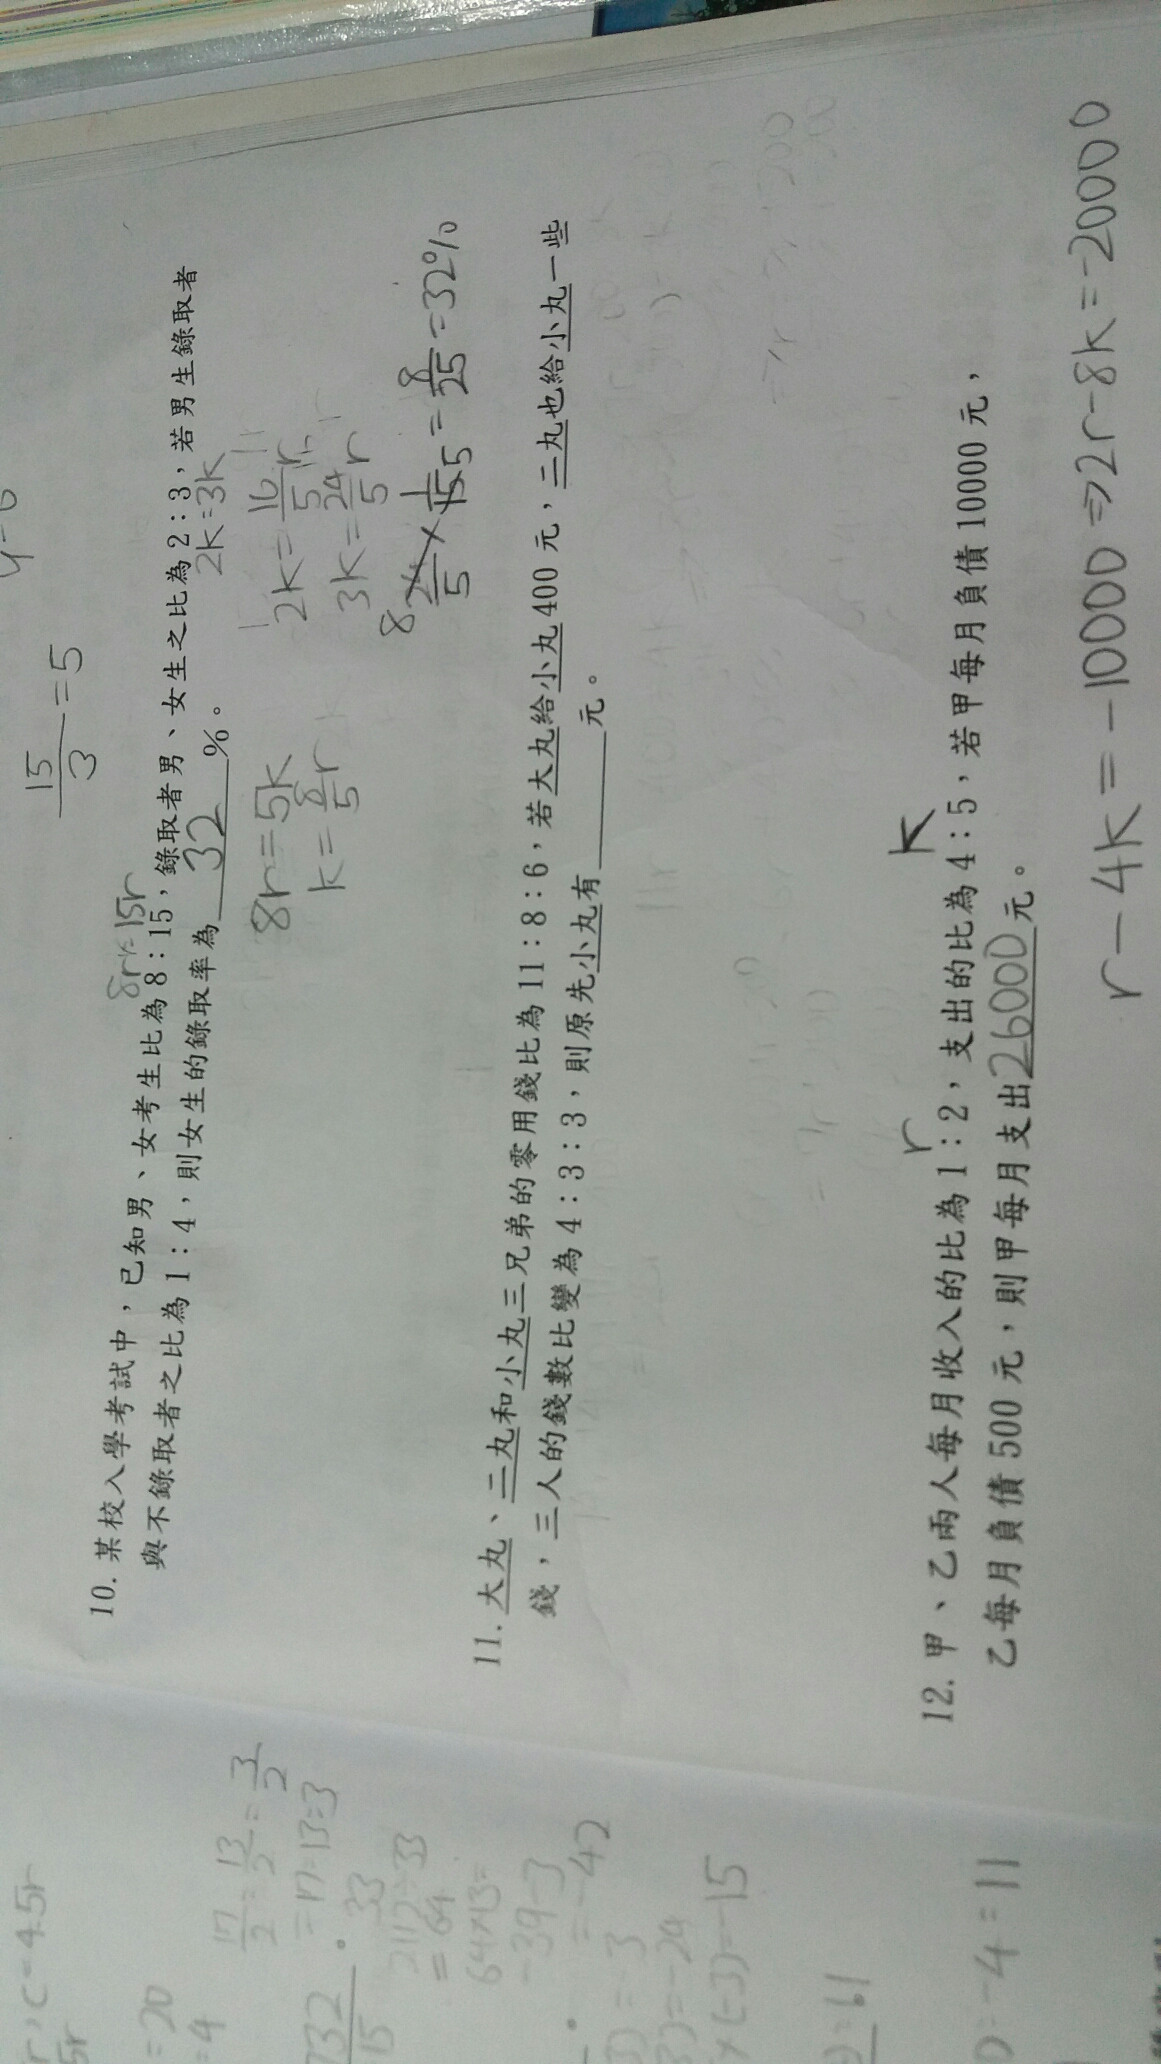 15/3=5
10. 某校入學考試中，已知男、女考生比為 8：15，錄取者男、女生之比為 2：3，若男生錄取者
與不錄取者之比為 1：4，則女生的錄取率為 32 %。
8r:15r
2k:3k
8r=5k
k=8/5r
2k=16/5r
3k=24/5r
8 24/5×1/15 5=8/25=32%
11. 大丸、二丸和小丸三兄弟的零用錢比為 11：8：6，若大丸給小丸 400 元，二丸也給小丸一些
錢，三人的錢數比變為 4：3：3，則原先小丸有 元。
r
k
12. 甲、乙兩人每月收入的比為 1：2，支出的比為 4：5，若甲每月負債 10000 元，
乙每月負債 500 元，則甲每月支出 26000 元。
r-4k=-10000⇒2r-8k=-20000
17/2=13/2=3/2
=17:13:3
33
64×13=
-39-3
=-42
=-24
×(-3)=-15
=61
=-4=11
=20
=4
c=4.5r